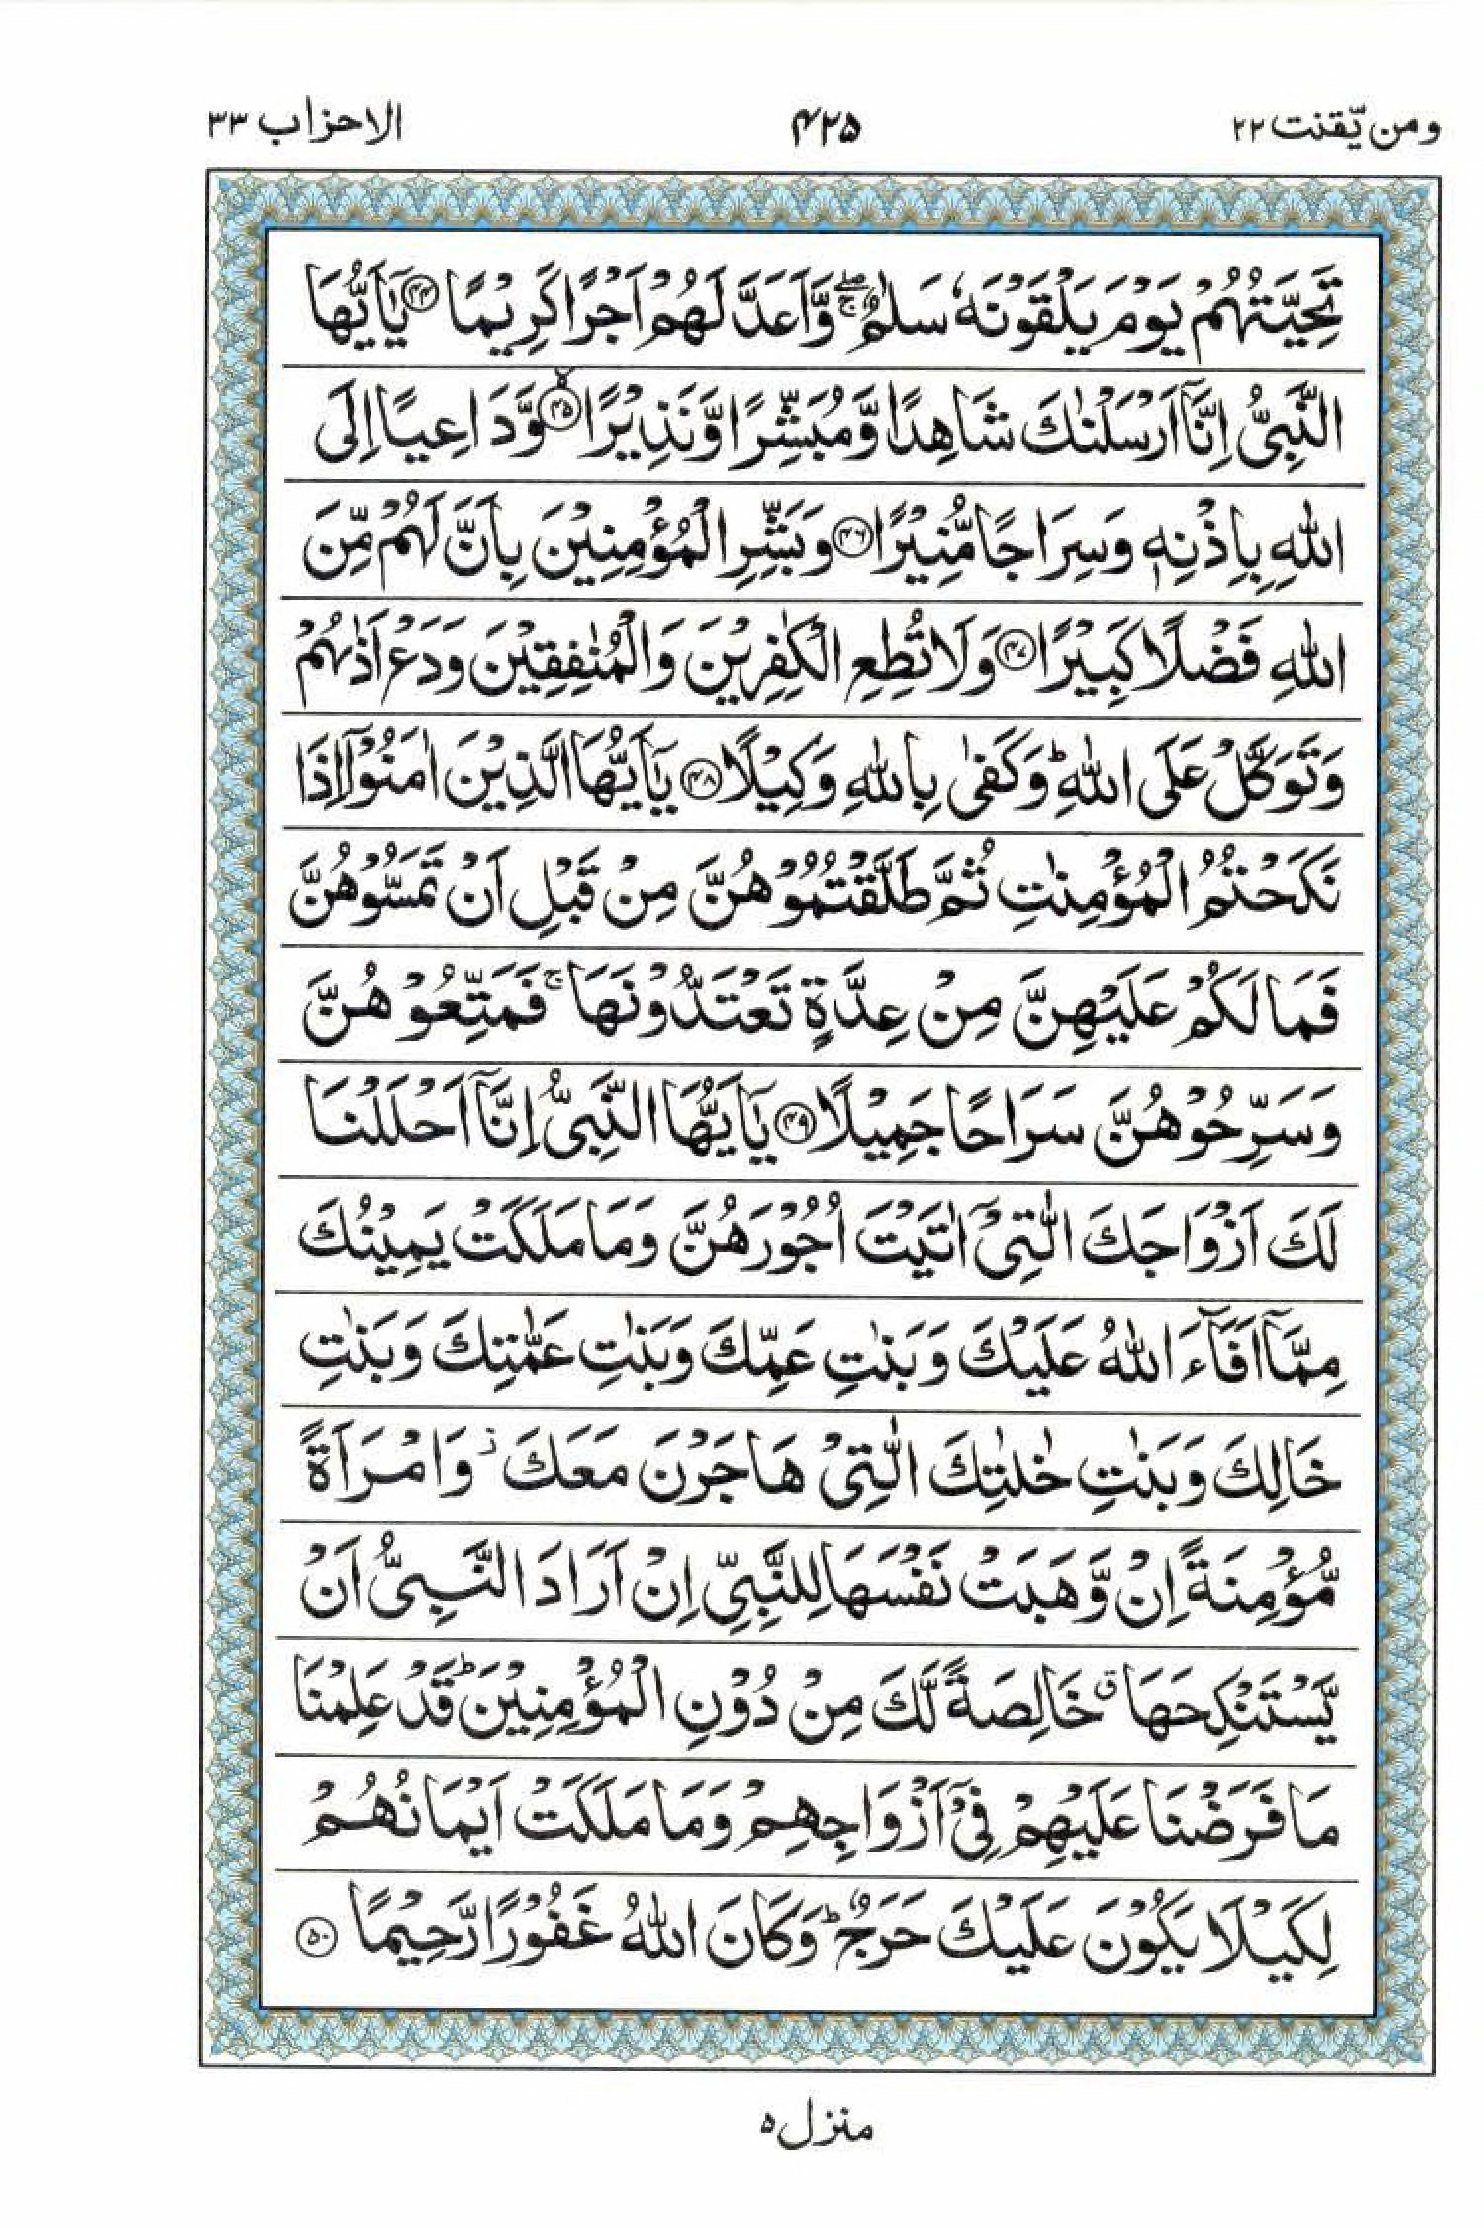 ومن يّقنت ٢٢ ۴۲۵ الاحزاب ٣٣
تَحِيَّتُهُمْ يَوْمَ يَلْقَوْنَهٗ سَلٰمٌ ۖۚ وَّاَعَدَّ لَهُمْ اَجْرًا كَرِيْمًا ﴿۴۴﴾ يٰۤاَيُّهَا
النَّبِىُّ اِنَّاۤ اَرْسَلْنٰكَ شَاهِدًا وَّمُبَشِّرًا وَّنَذِيْرًا ﴿۴۵﴾ۙ وَّدَاعِيًا اِلَى
اللّٰهِ بِاِذْنِهٖ وَسِرَاجًا مُّنِيْرًا ﴿۴۶﴾ وَبَشِّرِ الْمُؤْمِنِيْنَ بِاَنَّ لَهُمْ مِّنَ
اللّٰهِ فَضْلًا كَبِيْرًا ﴿۴۷﴾ وَلَا تُطِعِ الْكٰفِرِيْنَ وَالْمُنٰفِقِيْنَ وَدَعْ اَذٰىهُمْ
وَتَوَكَّلْ عَلَى اللّٰهِ ؕ وَكَفٰى بِاللّٰهِ وَكِيْلًا ﴿۴۸﴾ يٰۤاَيُّهَا الَّذِيْنَ اٰمَنُوْۤا اِذَا
نَكَحْتُمُ الْمُؤْمِنٰتِ ثُمَّ طَلَّقْتُمُوْهُنَّ مِنْ قَبْلِ اَنْ تَمَسُّوْهُنَّ
فَمَا لَكُمْ عَلَيْهِنَّ مِنْ عِدَّةٍ تَعْتَدُّوْنَهَا ۚ فَمَتِّعُوْهُنَّ
وَسَرِّحُوْهُنَّ سَرَاحًا جَمِيْلًا ﴿۴۹﴾ يٰۤاَيُّهَا النَّبِىُّ اِنَّاۤ اَحْلَلْنَا
لَكَ اَزْوَاجَكَ الّٰتِىْۤ اٰتَيْتَ اُجُوْرَهُنَّ وَمَا مَلَكَتْ يَمِيْنُكَ
مِمَّاۤ اَفَآءَ اللّٰهُ عَلَيْكَ وَبَنٰتِ عَمِّكَ وَبَنٰتِ عَمّٰتِكَ وَبَنٰتِ
خَالِكَ وَبَنٰتِ خٰلٰتِكَ الّٰتِىْ هَاجَرْنَ مَعَكَ ز وَامْرَاَةً
مُّؤْمِنَةً اِنْ وَّهَبَتْ نَفْسَهَا لِلنَّبِىِّ اِنْ اَرَادَ النَّبِىُّ اَنْ
يَّسْتَنْكِحَهَا ق خَالِصَةً لَّكَ مِنْ دُوْنِ الْمُؤْمِنِيْنَ ؕ قَدْ عَلِمْنَا
مَا فَرَضْنَا عَلَيْهِمْ فِىْۤ اَزْوَاجِهِمْ وَمَا مَلَكَتْ اَيْمَانُهُمْ
لِكَيْلَا يَكُوْنَ عَلَيْكَ حَرَجٌ ؕ وَكَانَ اللّٰهُ غَفُوْرًا رَّحِيْمًا ﴿۵۰﴾
منزل ۵